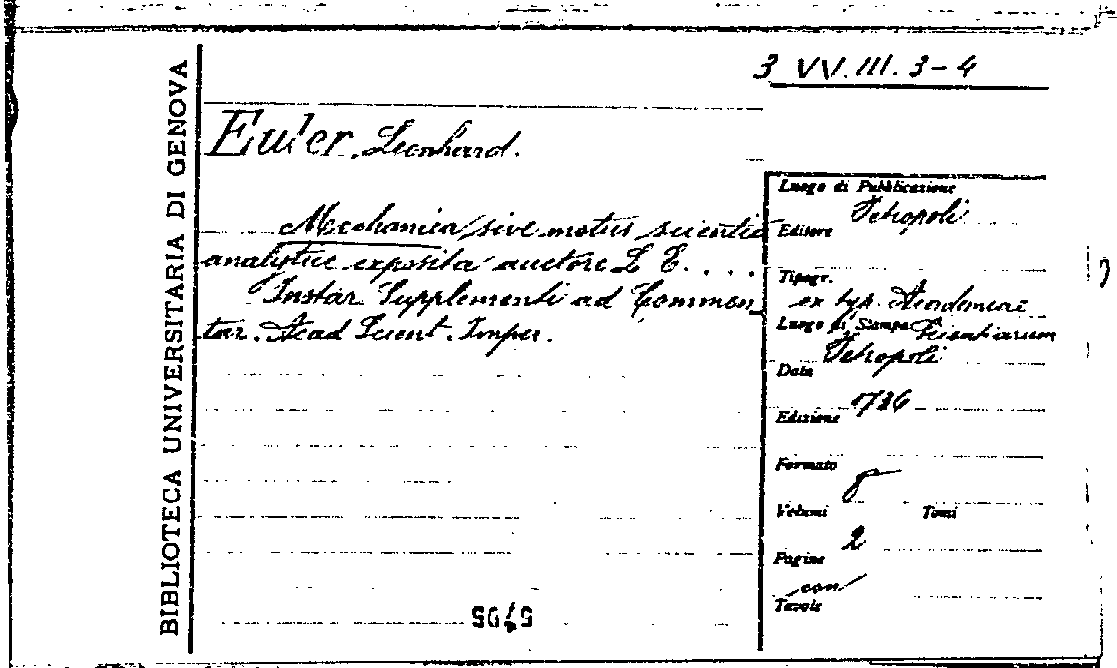 BIBLIOTECA UNIVERSITARIA DI GENOVA
3 VV.III. 3-4
Euler, Leonhard.
Mechanica sive motus scientia
analytice exposita auctore L. E. . . . .
Instar Supplementi ad Commen
tar. Acad Scient. Imper.
Luogo di Pubblicazione
Petropoli
Editore
Tipogr.
ex typ. Academiae
Luogo di Stampa Scientiarum
Petropoli
Data
1736
Edizione
Formato
8
Volumi Tomi
2
Pagine
con
Tavole